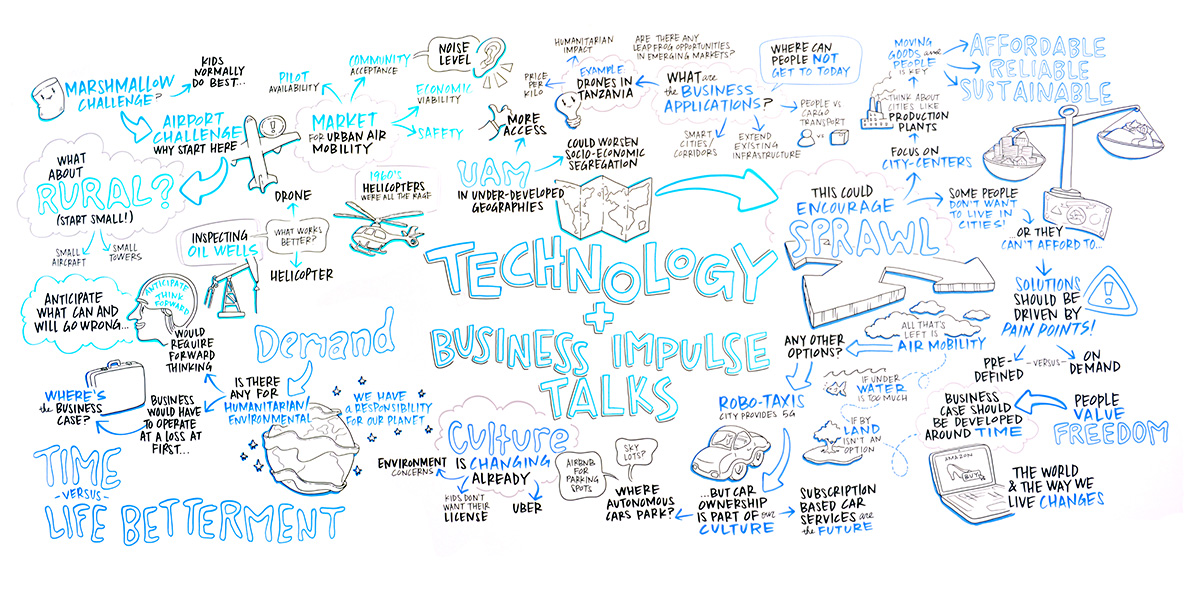 MARSHMALLOW
CHALLENGE?
KIDS
NORMALLY
DO BEST...
AIRPORT
CHALLENGE
WHY START HERE
WHAT
ABOUT
RURAL?
(START SMALL!)
SMALL
AIRCRAFT
SMALL
TOWERS
PILOT
AVAILABILITY
COMMUNITY
ACCEPTANCE
NOISE
LEVEL
ECONOMIC
VIABILITY
SAFETY
MARKET
FOR URBAN AIR
MOBILITY
DRONE
WHAT WORKS
BETTER?
HELICOPTER
INSPECTING
OIL WELLS
1960'S
HELICOPTERS
WERE ALL THE RAGE
ANTICIPATE
WHAT CAN AND
WILL GO WRONG...
ANTICIPATE
THINK
FORWARD
WOULD
REQUIRE
FORWARD
THINKING
Demand
IS THERE
ANY FOR
HUMANITARIAN/
ENVIRONMENTAL
WE HAVE
A RESPONSIBILITY
FOR OUR PLANET
WHERE'S
the BUSINESS
CASE?
BUSINESS
WOULD HAVE
TO OPERATE
AT A LOSS AT
FIRST...
TIME
-VERSUS-
LIFE BETTERMENT
HUMANITARIAN
IMPACT
ARE THERE ANY
LEAPFROG OPPORTUNITIES
IN EMERGING MARKETS?
PRICE
PER
KILO
EXAMPLE
DRONES IN
TANZANIA
WHAT are
the BUSINESS
APPLICATIONS?
WHERE CAN
PEOPLE NOT
GET TO TODAY
PEOPLE VS
CARGO
TRANSPORT
VS
SMART
CITIES/
CORRIDORS
EXTEND
EXISTING
INFRASTRUCTURE
MORE
ACCESS
COULD WORSEN
SOCIO-ECONOMIC
SEGREGATION
UAM
IN UNDER-DEVELOPED
GEOGRAPHIES
TECHNOLOGY
+
BUSINESS IMPULSE
TALKS
MOVING
GOODS and
PEOPLE
IS KEY
AFFORDABLE
RELIABLE
SUSTAINABLE
THINK ABOUT
CITIES LIKE
PRODUCTION
PLANTS
FOCUS ON
CITY-CENTERS
THIS COULD
ENCOURAGE
SPRAWL
SOME PEOPLE
DON'T WANT
TO LIVE IN
CITIES!
OR THEY
CAN'T AFFORD TO...
SOLUTIONS
SHOULD BE
DRIVEN BY
PAIN POINTS!
PRE-
DEFINED
-VERSUS-
ON
DEMAND
ALL THAT'S
LEFT IS
AIR MOBILITY
ANY OTHER
OPTIONS?
IF UNDER
WATER
IS TOO MUCH
IF BY
LAND
ISN'T AN
OPTION
ROBO-TAXIS
CITY PROVIDES 5G
BUSINESS
CASE SHOULD
BE DEVELOPED
AROUND TIME
PEOPLE
VALUE
FREEDOM
AMAZON
BUY
THE WORLD
& THE WAY WE
LIVE CHANGES
Culture
IS CHANGING
ALREADY
ENVIRONMENT
CONCERNS
KIDS DON'T
WANT THEIR
LICENSE
UBER
AIRBNB
FOR
PARKING
SPOTS
SKY
LOTS?
WHERE
AUTONOMOUS
CARS PARK?
...BUT CAR
OWNERSHIP
IS PART OF our
CULTURE
SUBSCRIPTION
BASED CAR
SERVICES are
the FUTURE